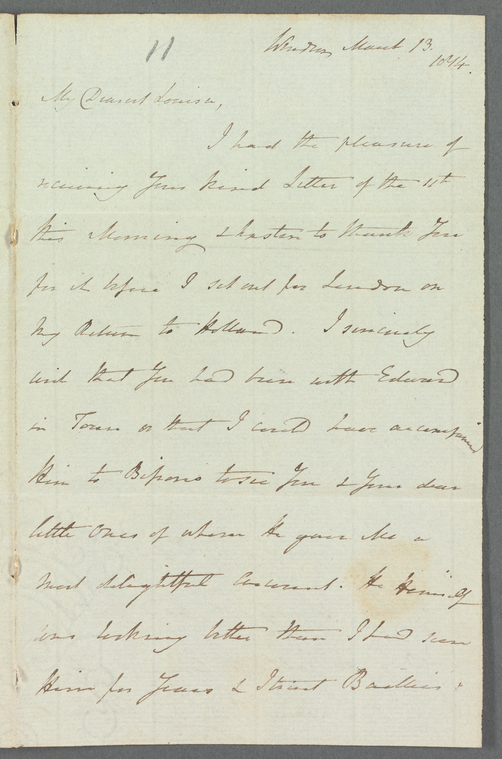 11
Windsor March 13.
1814.
My Dearest Louisa,
I had the pleasure of
receiving Your kind Letter of the 11th
this Morning & hasten to thank You
for it before I set out for London on
my Return to Holland. I sincerely
wish that You had been with Edward
in Town or that I could have accompanied
Him to Bifrons to see You & Your dear
little Ones of whom He gave Me a
most delightful Account. He Himself
was looking better than I had seen
Him for Years & I trust Baillie's